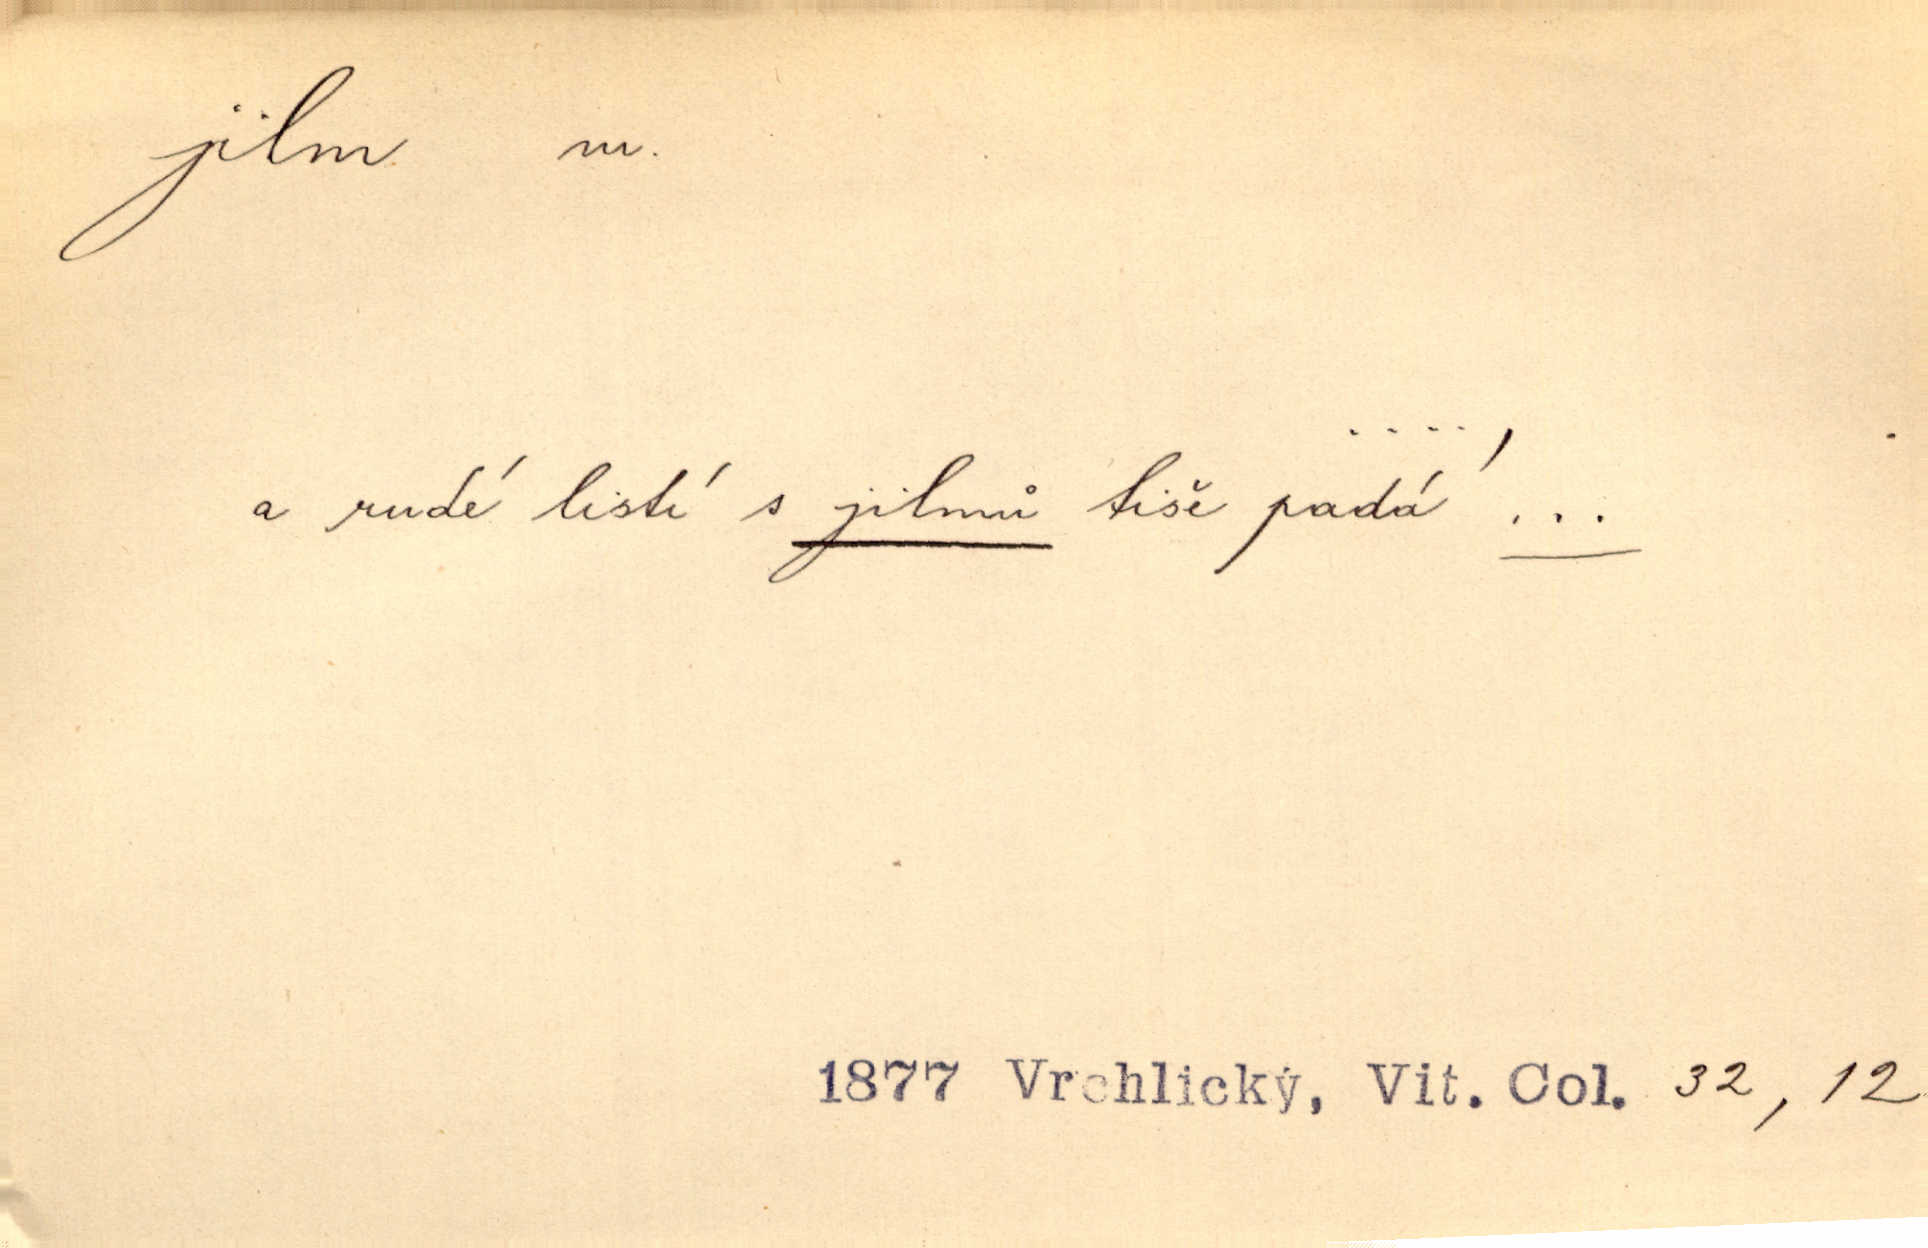 jilm m.
a rudé listí s jilmů tiše padá ...
1877 Vrchlický, Vit. Col. 32, 12